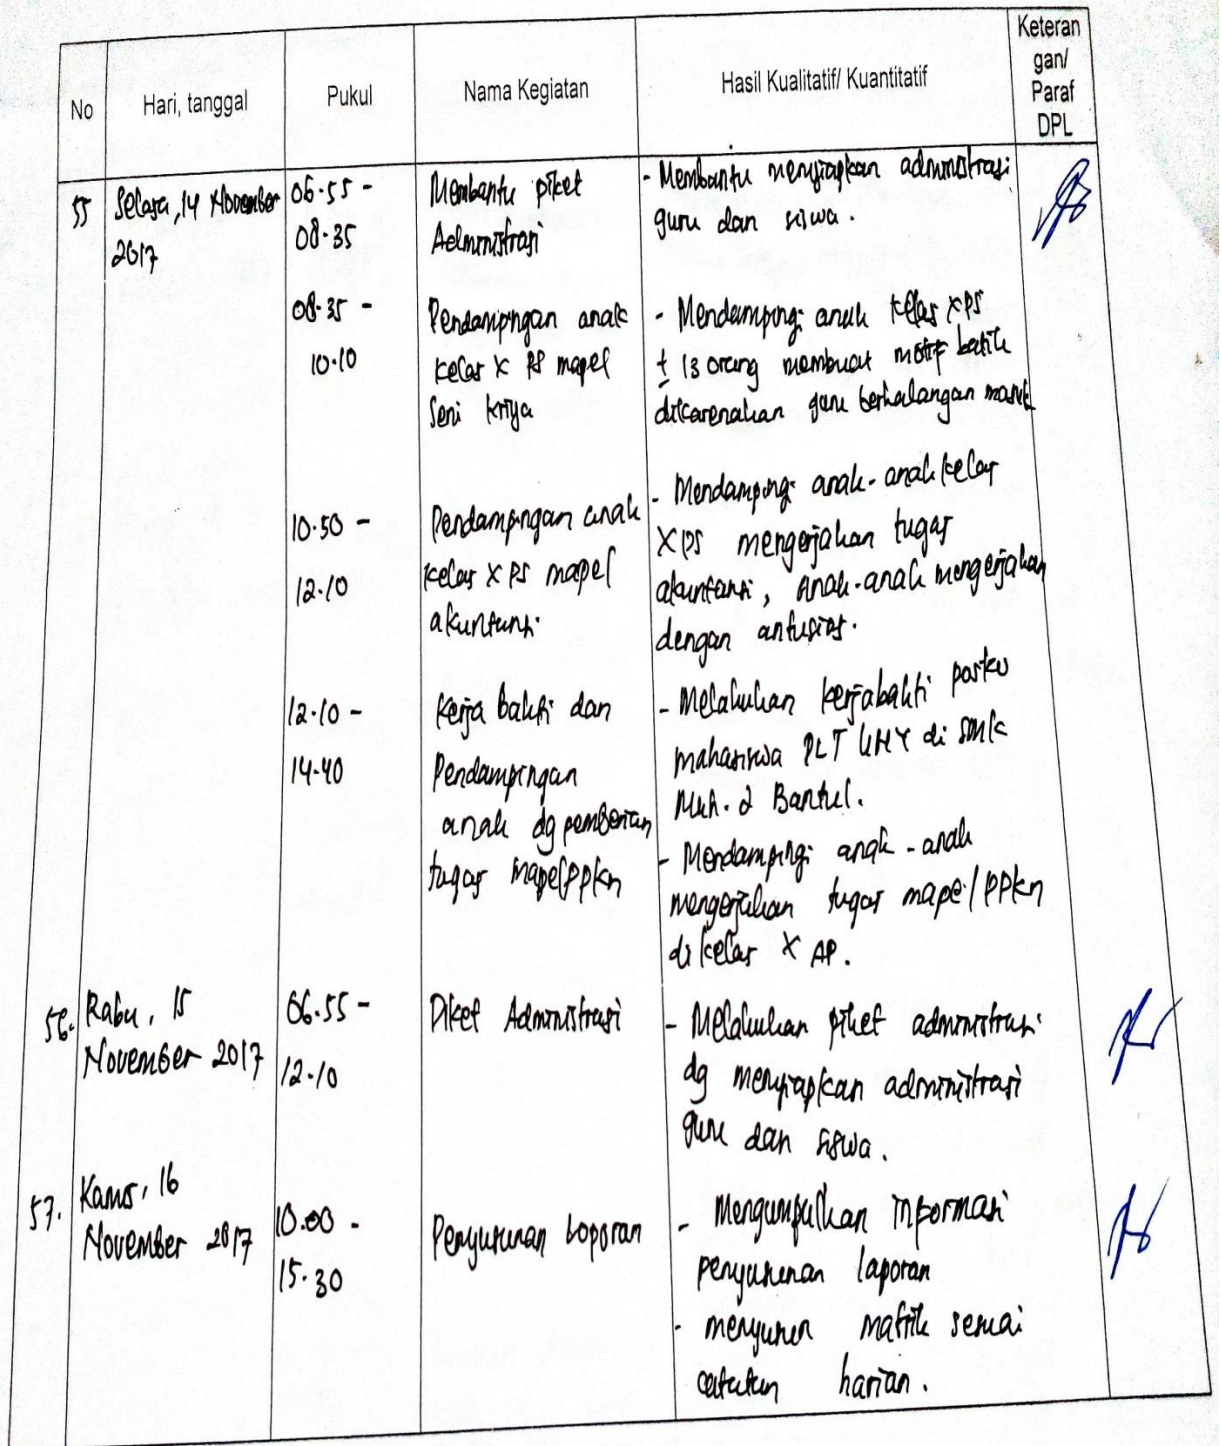 No
Hari, tanggal
Pukul
Nama Kegiatan
Hasil Kualitatif/ Kuantitatif
Keteran
gan/
Paraf
DPL
55
Selasa, 14 November
2017
06.55 -
08.35
Membantu piket
Administrasi
- Membantu menyiapkan administrasi
guru dan siswa.
08.35 -
10.10
Pendampingan anak
kelas X PS mapel
Seni kriya
- Mendampingi anak kelas X PS
± 13 orang membuat motif batik
dikarenakan guru berhalangan masuk
10.50 -
12.10
Pendampingan anak
kelas X PS mapel
akuntansi
- Mendampingi anak-anak kelas
X PS mengerjakan tugas
akuntansi, anak-anak mengerjakan
dengan antusias.
12.10 -
14.40
Kerja bakti dan
Pendampingan
anak dg pemberian
tugas mapel PPkn
- Melakukan kerjabakti posko
mahasiswa PLT UNY di SMK
Muh. 2 Bantul.
- Mendampingi anak-anak
mengerjakan tugas mapel PPkn
di kelas X AP.
56.
Rabu, 15
November 2017
06.55 -
12.10
Piket Administrasi
- Melakukan piket administrasi
dg menyiapkan administrasi
guru dan siswa.
57.
Kamis, 16
November 2017
10.00 -
15.30
Penyusunan Laporan
- Mengumpulkan informasi
penyusunan laporan
- menyusun matrik sesuai
catatan harian.